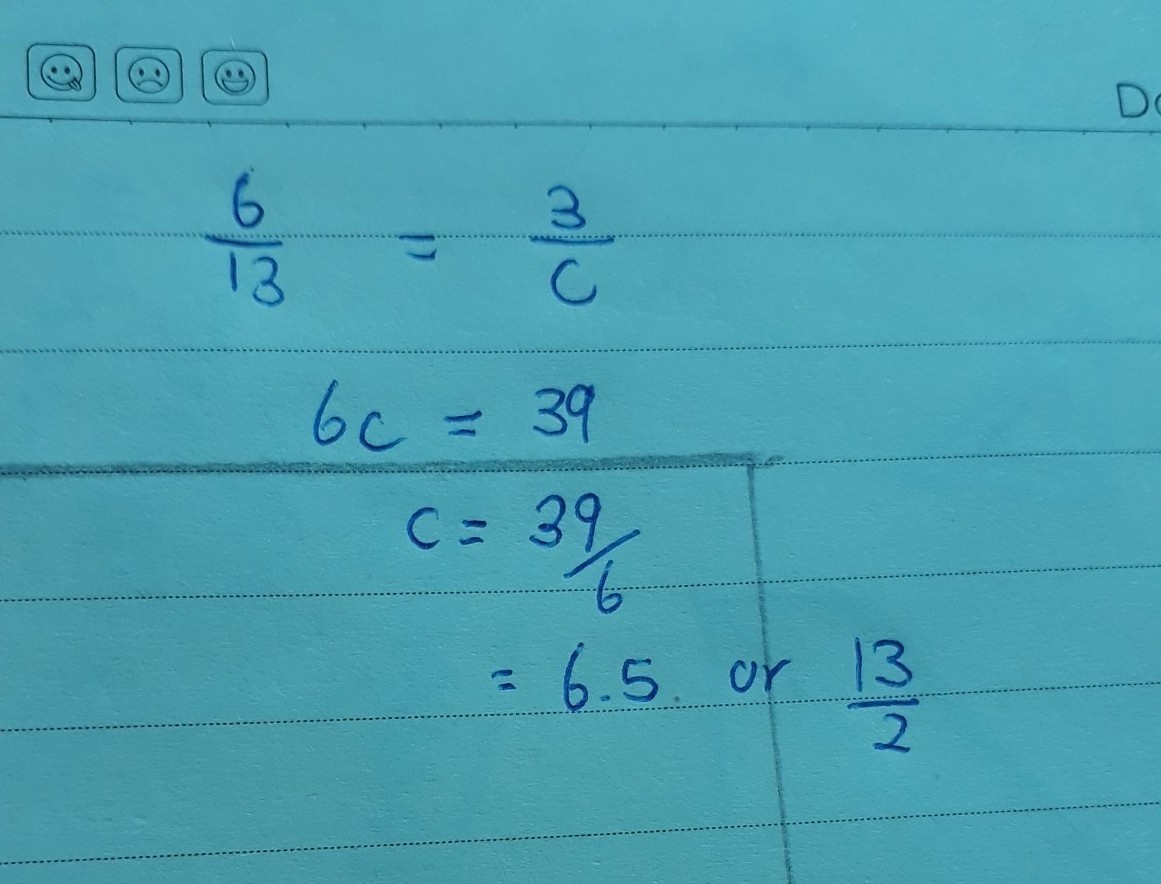 Do
6/13 = 3/C
6c = 39
C = 39/6
= 6.5. or 13/2